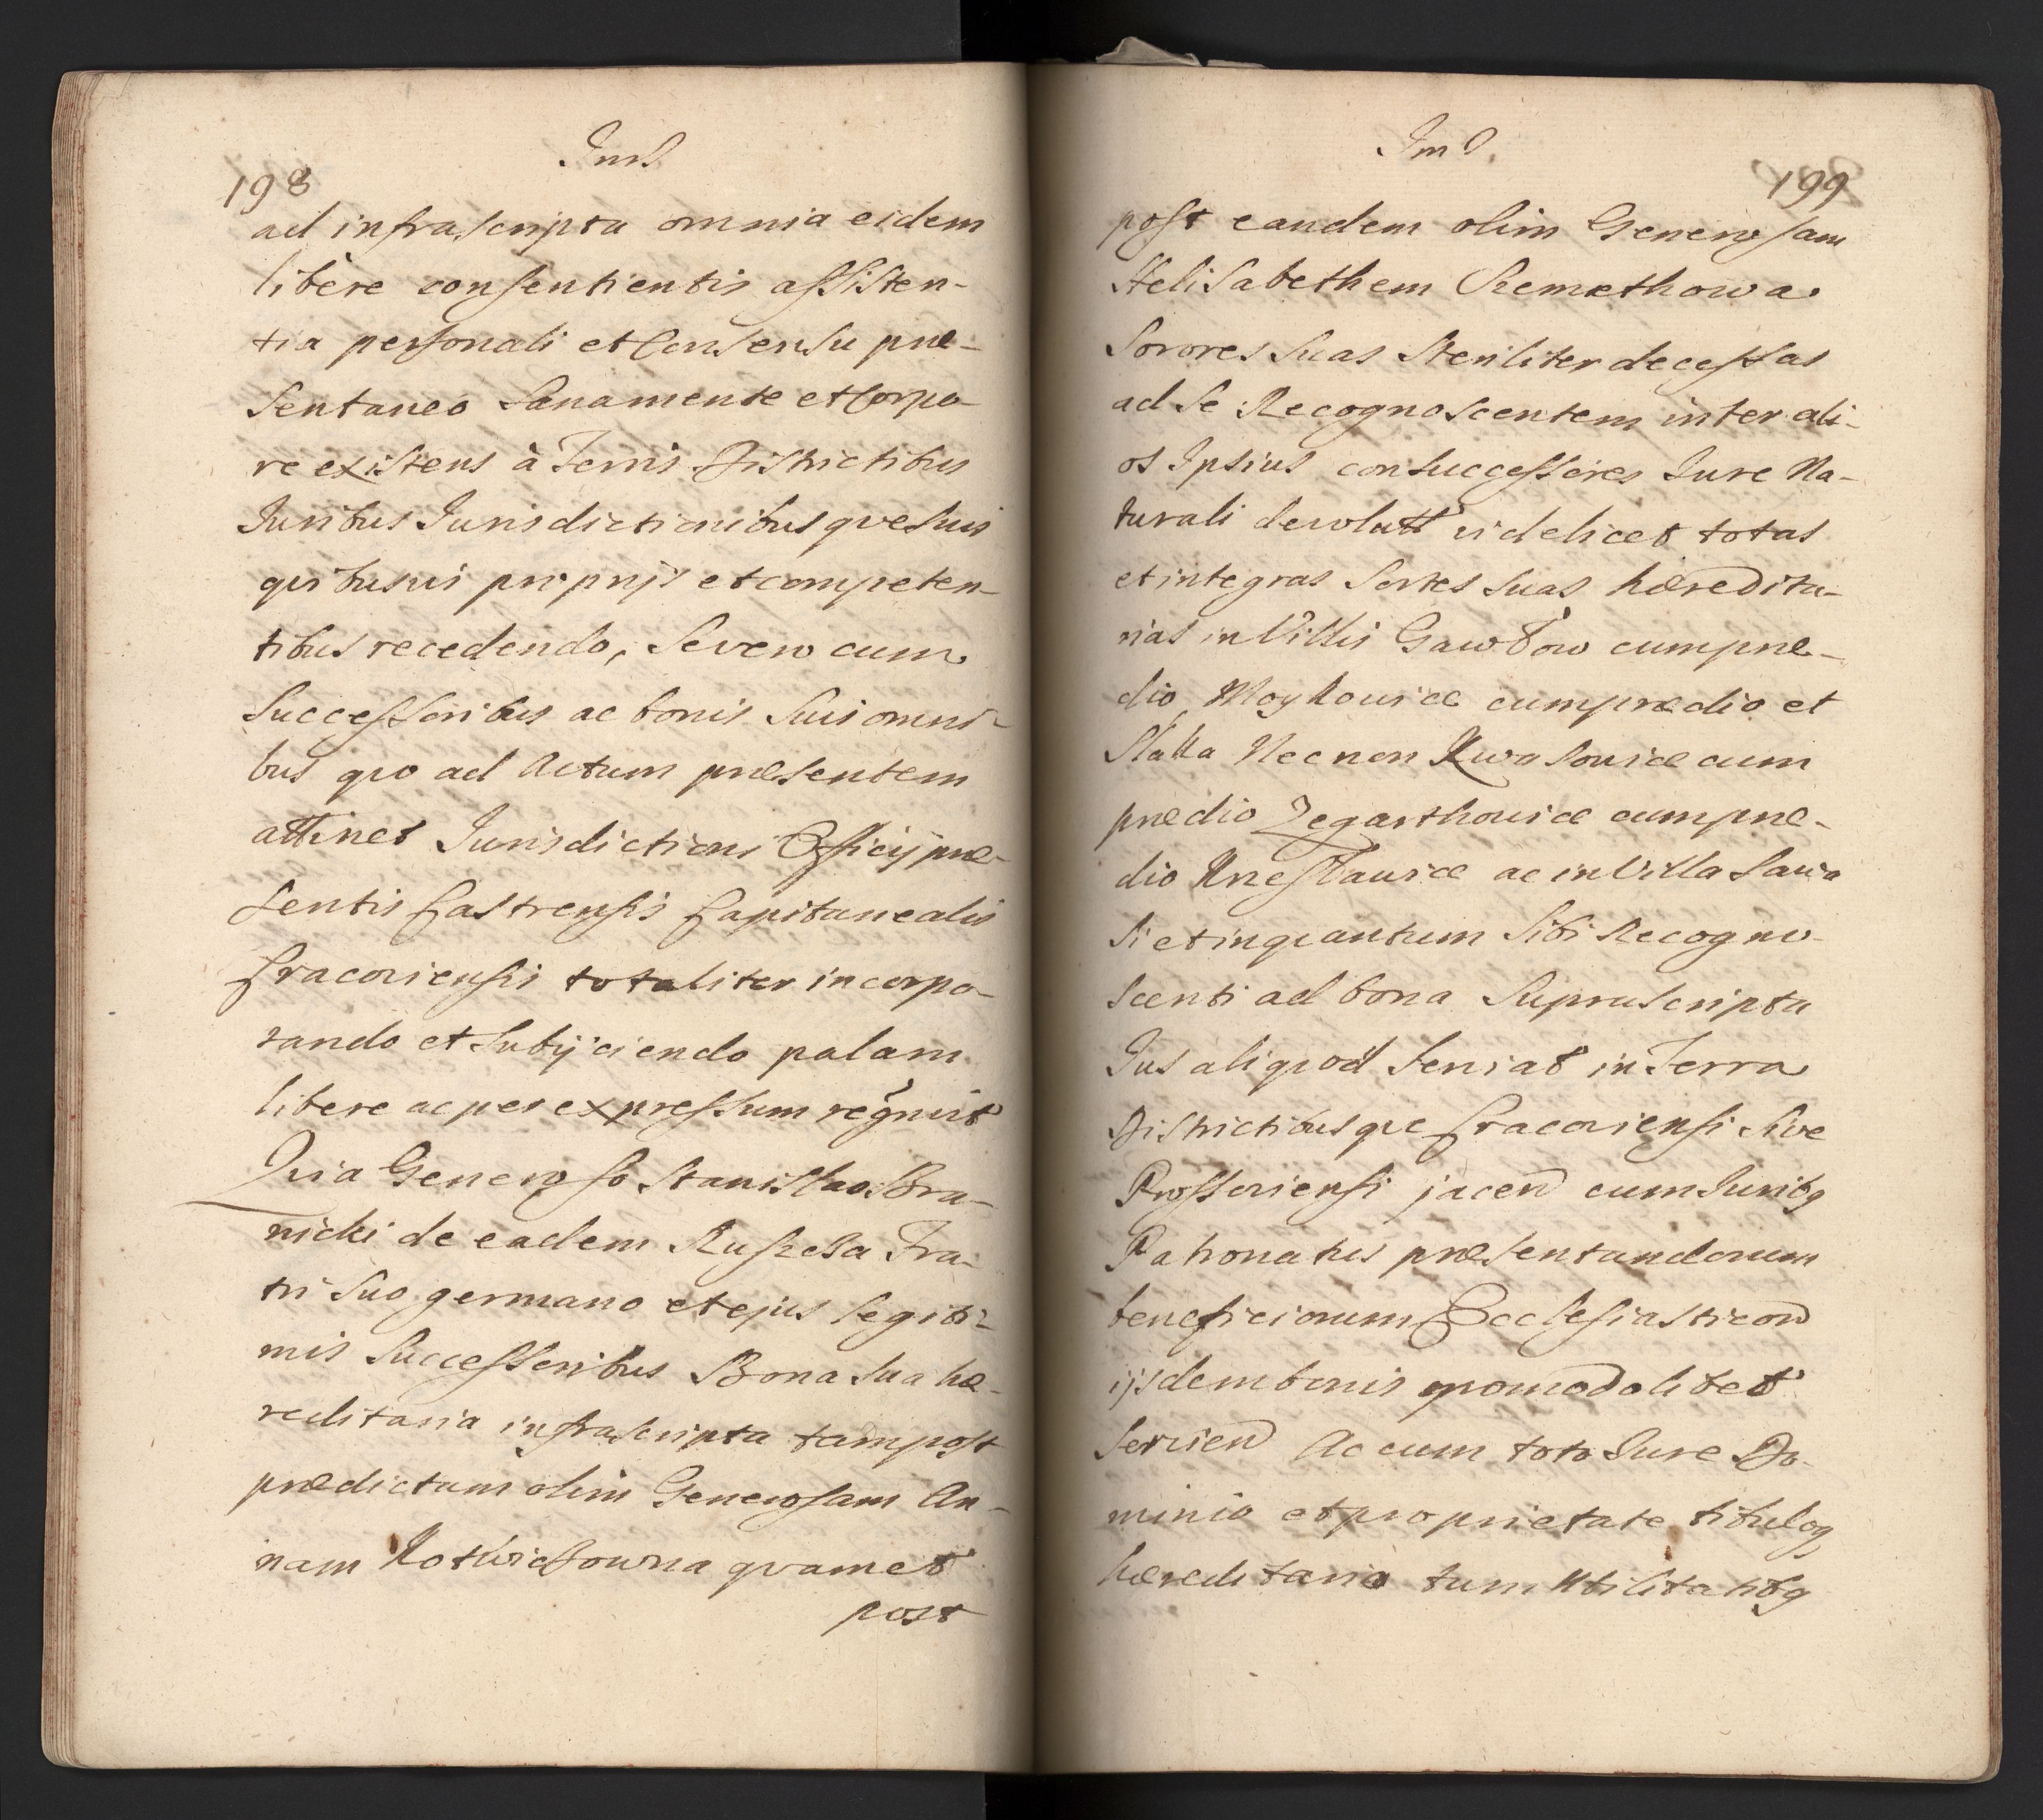 198
ad infrascripta omnia eidem
libere consentientis assisten-
tia personali et Consensu præ-
sentaneo Sanamente et Corpo-
re existens à Terris Districtibus
Juribus Jurisdictionibusque suis
quibusvis proprijs et competen-
tibus recedendo, Se vero cum
Successoribus ac bonis Suis omni-
bus quo ad Actum præsentem
attinet Jurisdictioni Officij præ-
sentis Castrensis Capitanealis
Cracoviensis totaliter incorpo-
rando et Subijciendo palam
libere ac per expressum regnvit
Quia Generoso Stanislao Bra-
nicki de eadem Ruszcza Fra-
tri Suo germano et ejus legiti-
mis Successoribus Bona Sua hæ-
reditaria infrascripta tam post
prædictam olim Generosam An-
nam quam et
post
199
post eandem olim Generosam
Helisabethem
Sorores Suas Steriliter decessas
ad Se Recognoscentem inter ali-
os Ipsius consuccessores Jure Na-
turali devolutt videlicet totas
et integras Sortes Suas hæredita-
rias in Villis Gawłow cum præ-
dio Moykovice cum prædio et
Slatta Necnon Kwasovice cum
prædio Zegarthovice cum præ-
dio ac in Villa Lawa
Si et inquantum Sibi Recogno-
scenti ad bona Supra scripta
Jus aliquod Serviat in Terra
Districtibusque Cracoviensi Sive
Prossoviensi jacen cum Juribq
Patronatus præsentandorum
beneficiorum Ecclesiasticor
ijsdem bonis quomodolibet
Servien Ac cum toto Jure Do-
minio et proprietate tituloq
hæreditario tum Utilitatibq